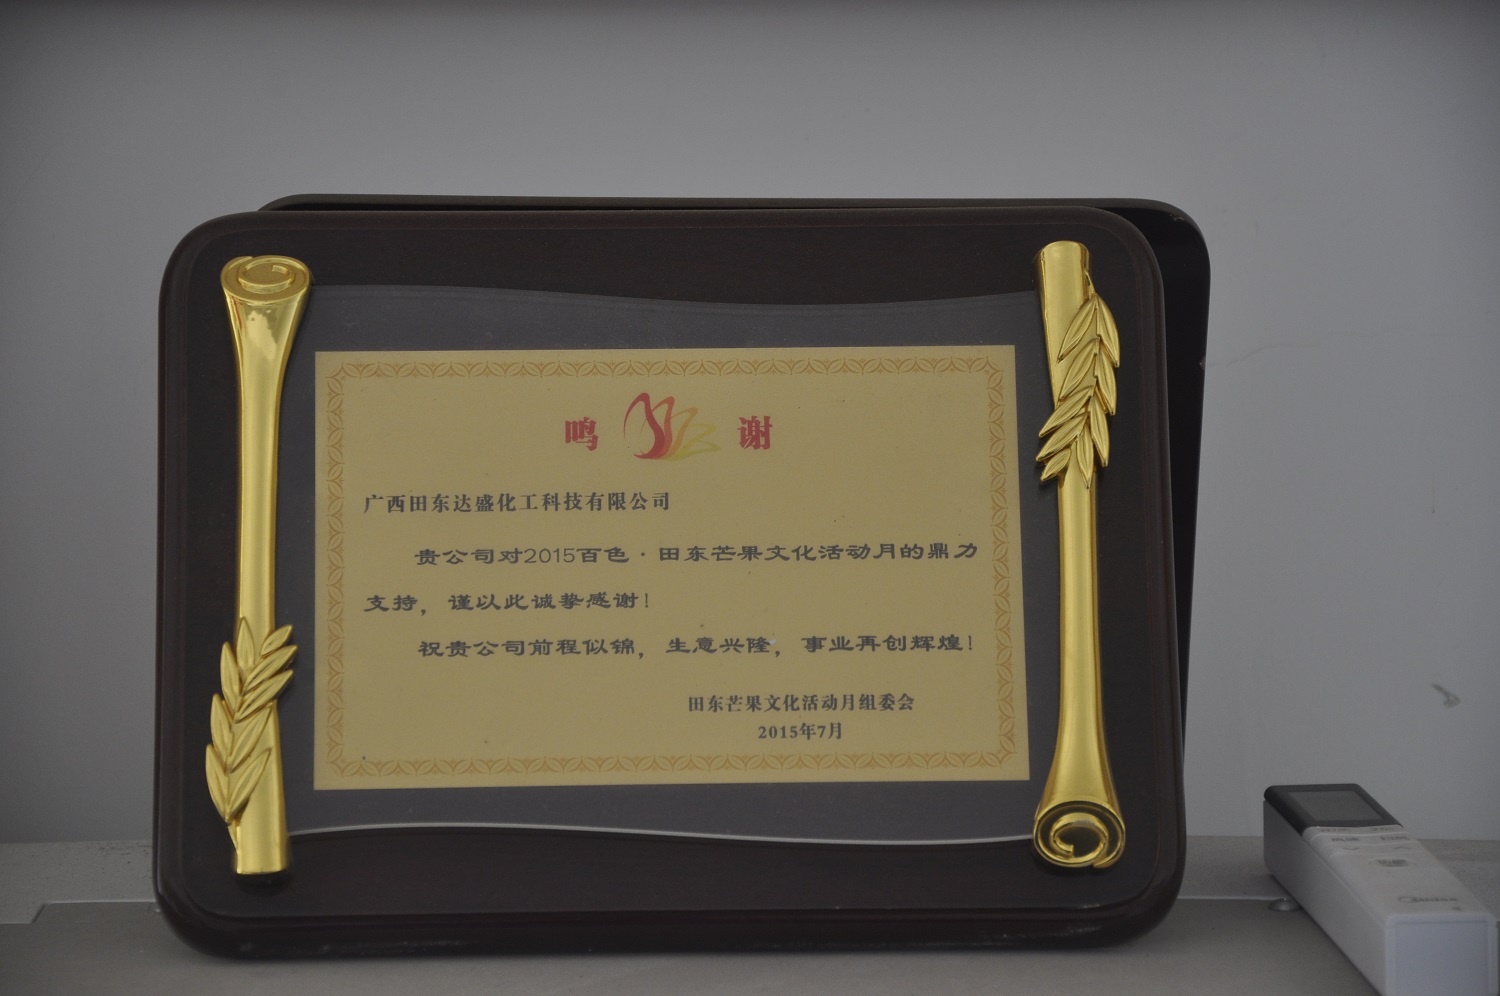 鸣 谢
广西田东达盛化工科技有限公司
贵公司对2015百色·田东芒果文化活动月的鼎力
支持，谨以此诚挚感谢！
祝贵公司前程似锦，生意兴隆，事业再创辉煌！
田东芒果文化活动月组委会
2015年7月
Midea